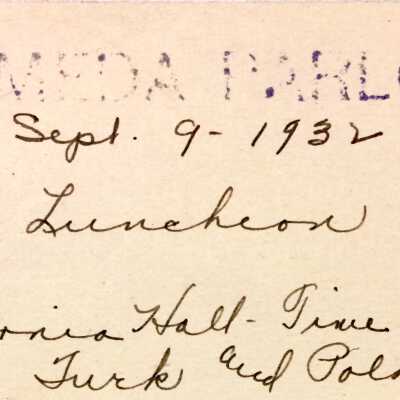 MEDA PARLO
Sept. 9 - 1932
Luncheon
ornia Hall - Time
Turk and Polk